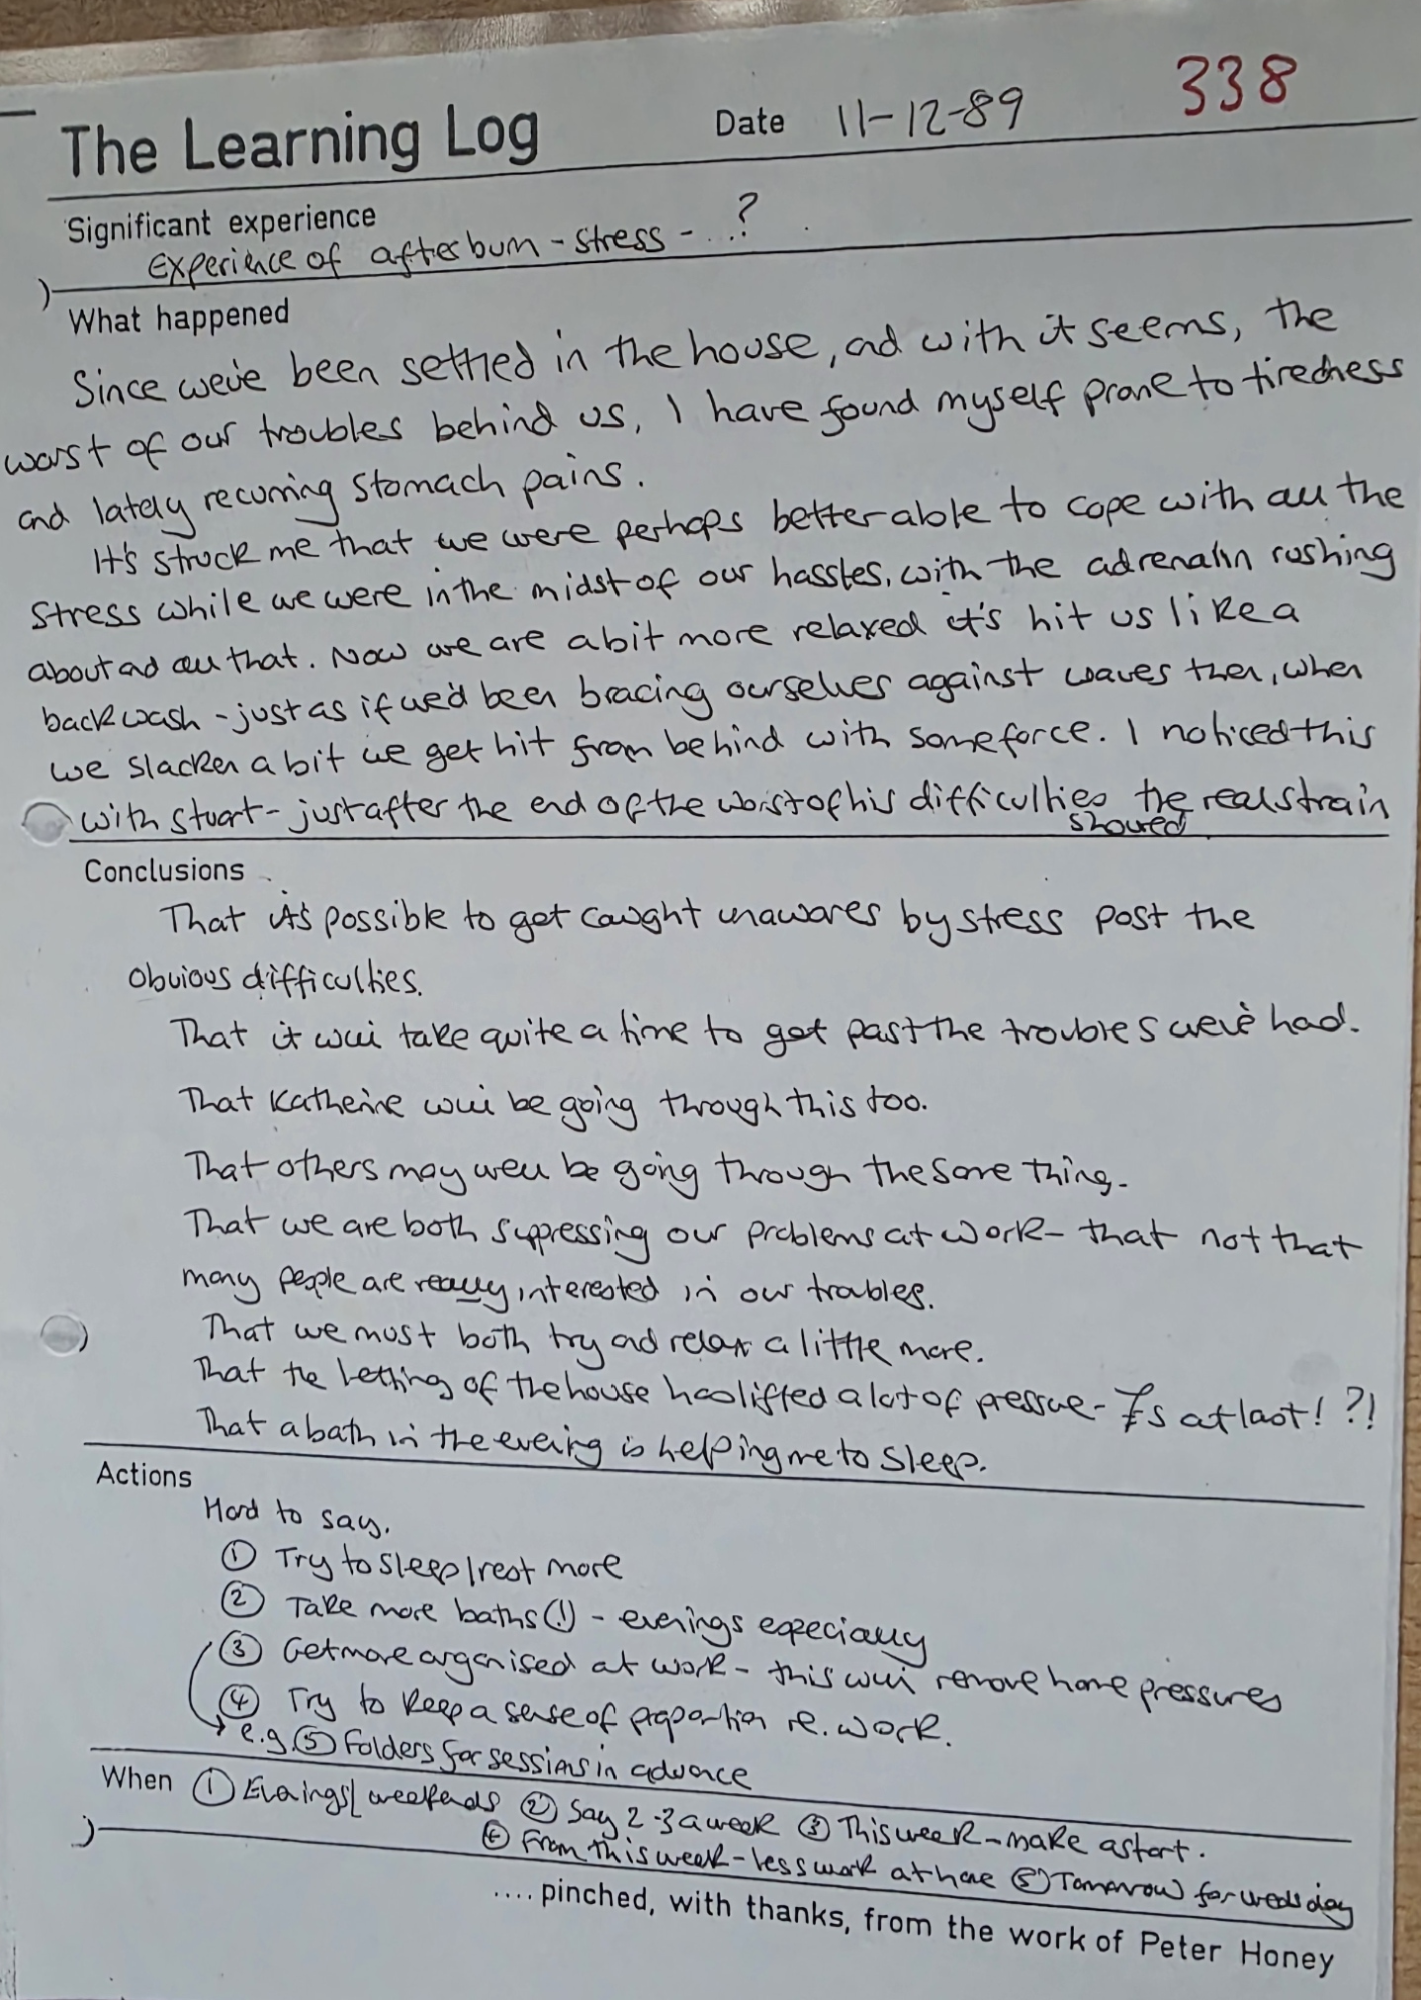 338
The Learning Log Date 11-12-89
Significant experience
Experience of afterburn - stress - ...?
What happened
Since we've been settled in the house, and with it seems, the
worst of our troubles behind us, I have found myself prone to tiredness
and lately recurring stomach pains.
It's struck me that we were perhaps better able to cope with all the
stress while we were in the midst of our hassles, with the adrenalin rushing
about and all that. Now we are a bit more relaxed it's hit us like a
backwash - just as if we'd been bracing ourselves against waves then, when
we slacken a bit we get hit from behind with some force. I noticed this
with Stuart - just after the end of the worst of his difficulties the real strain
showed
Conclusions
That it's possible to get caught unawares by stress post the
obvious difficulties.
That it will take quite a time to get past the troubles we've had.
That Katherine will be going through this too.
That others may well be going through the same thing.
That we are both suppressing our problems at work - that not that
many people are really interested in our troubles.
That we must both try and relax a little more.
That the letting of the house has lifted a lot of pressure - £s at last! ?!
That a bath in the evening is helping me to sleep.
Actions
Hard to say.
① Try to sleep/rest more
② Take more baths (!) - evenings especially
③ Get more organised at work - this will remove home pressures
④ Try to keep a sense of proportion re. work.
e.g. ⑤ Folders for sessions in advance
When ① Evenings/weekends ② Say 2-3 a week ③ This week - make a start.
④ From this week - less work at home ⑤ Tomorrow for wedsday
.... pinched, with thanks, from the work of Peter Honey